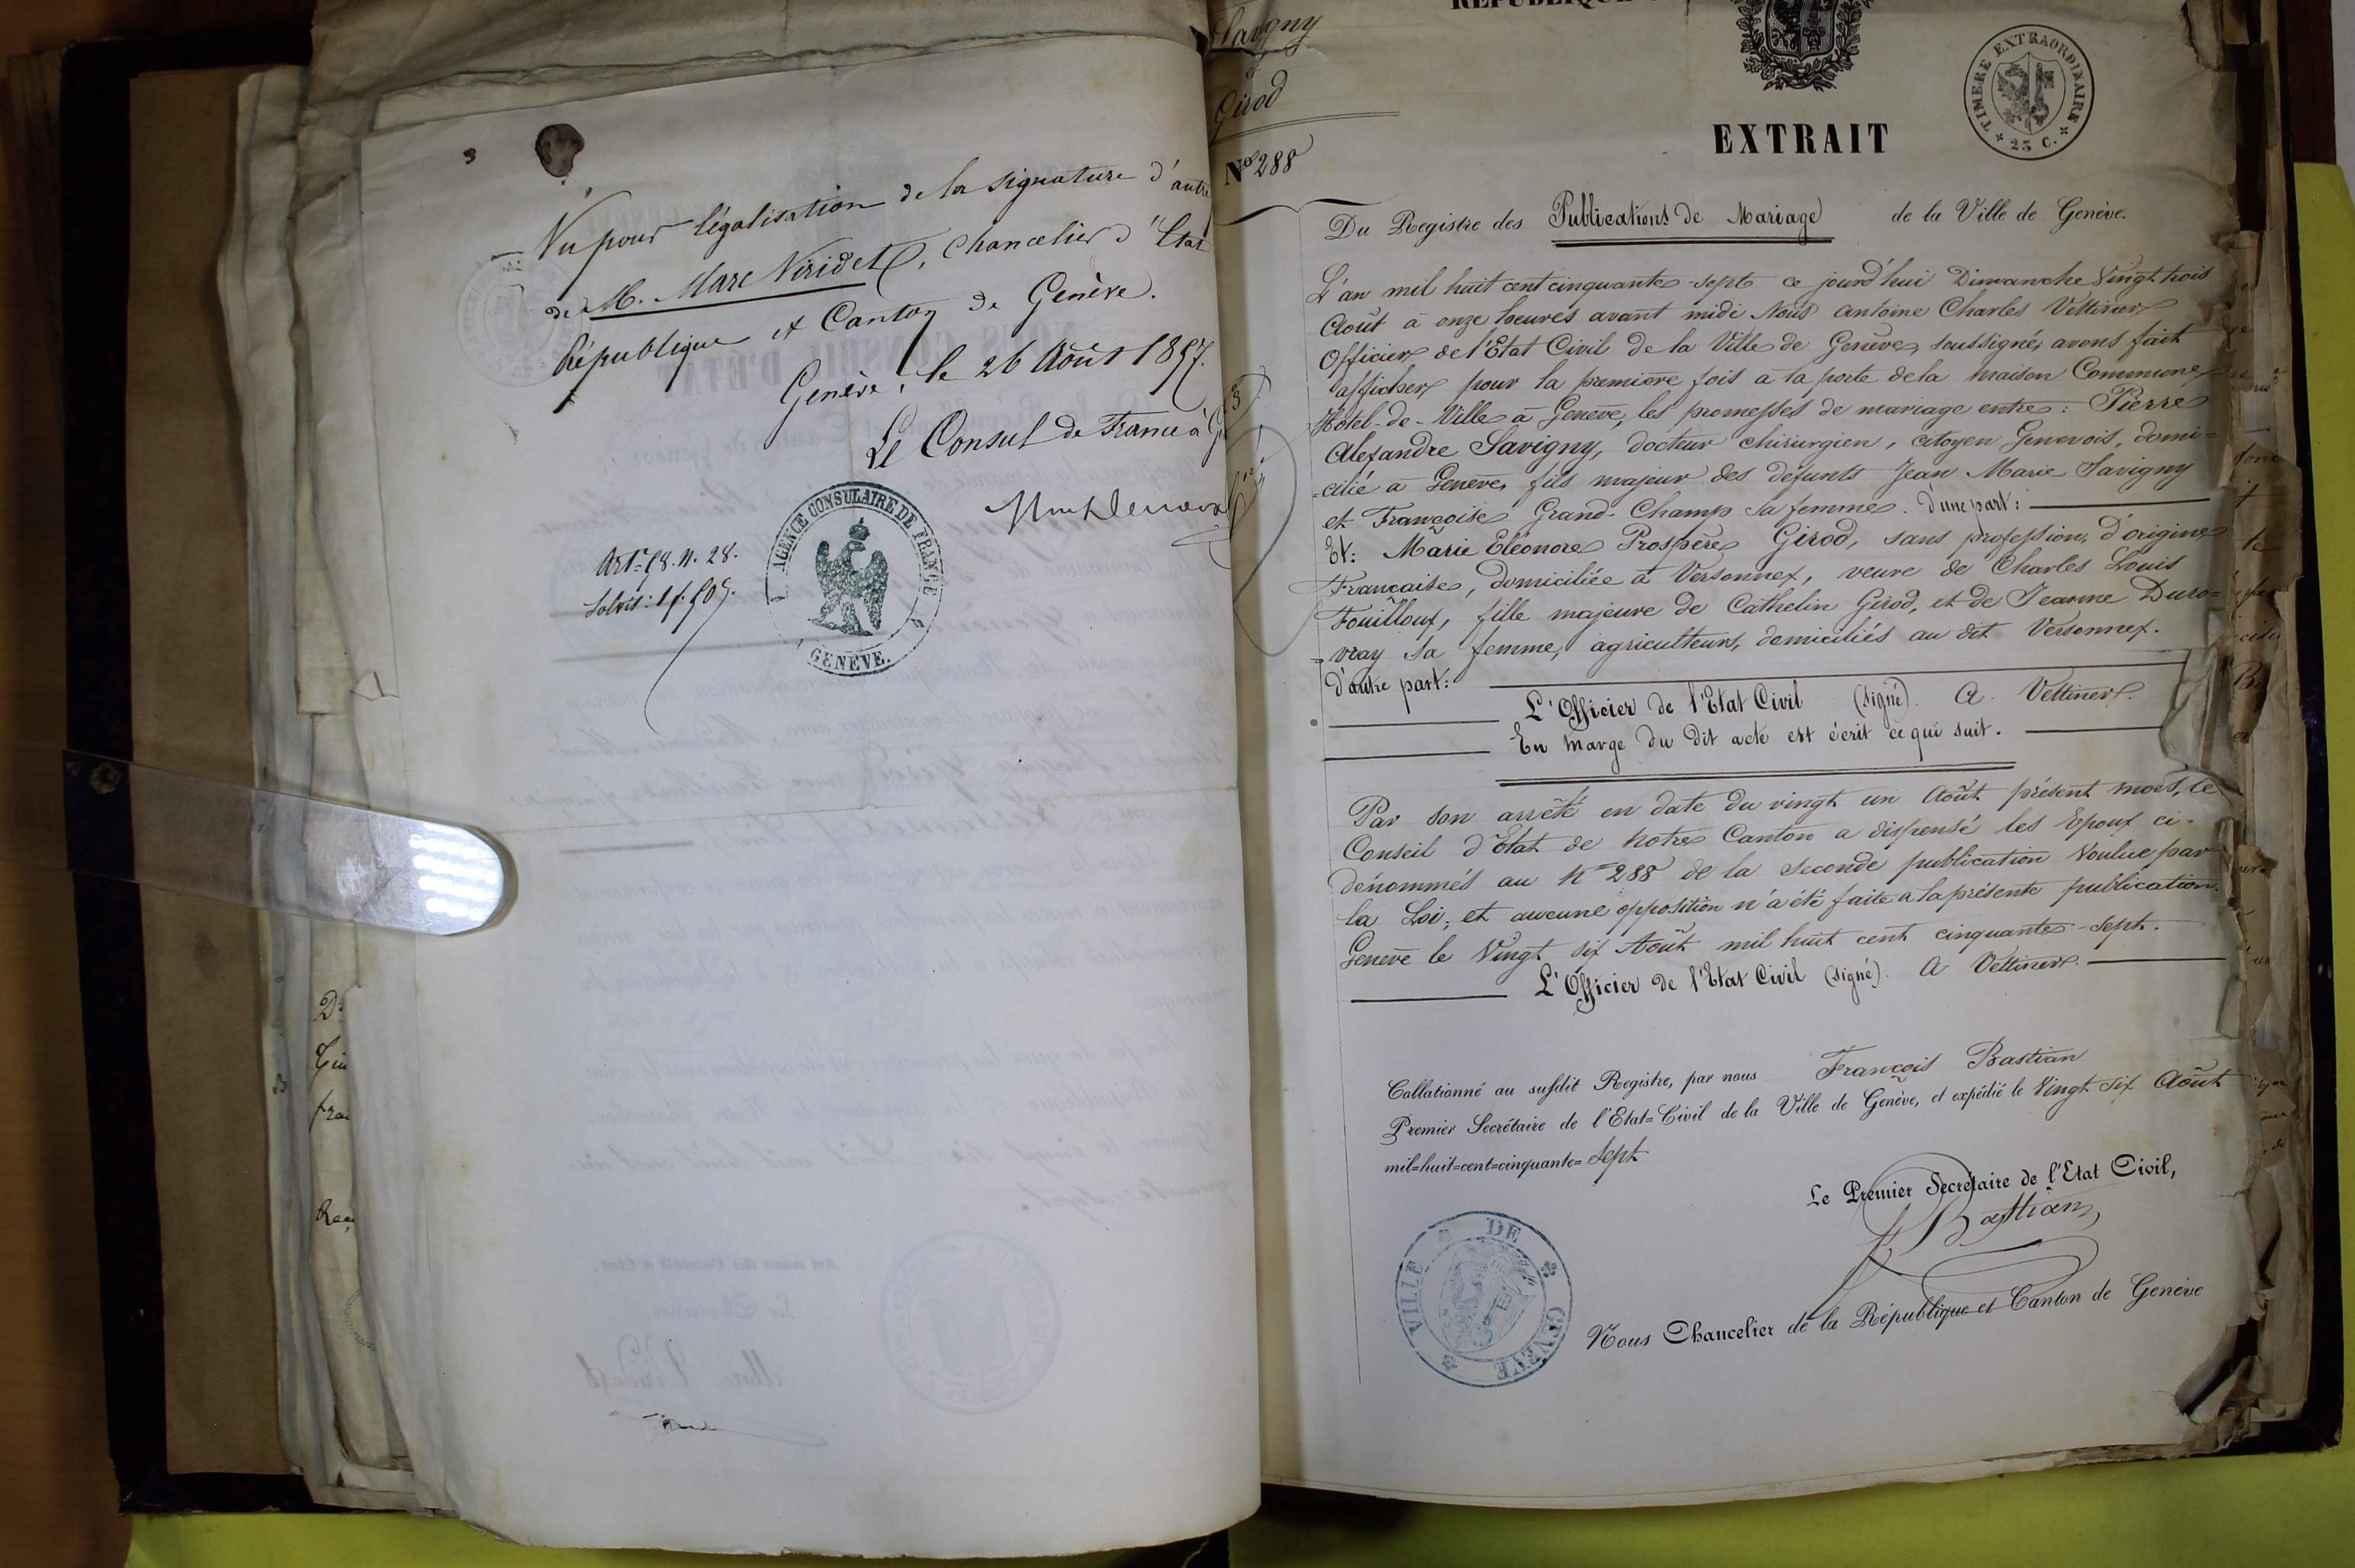 Vu pour légalisation de la signature d'autre
de M. Marc Viridet, Chancelier d'Etat
République et Canton de Genève.
Genève, le 26 Août 1857.
Le Consul de France à
AGENCE CONSULAIRE DE FRANCE
GENÈVE.
Savigny
&
Girod
No 288
EXTRAIT
TIMBRE EXTRAORDINAIRE
25 C.
Du Registre des Publications de Mariage de la Ville de Genève.
L'an mil huit cent cinquante-sept ce jourd'hui Dimanche Vingt trois
Août à onze heures avant midi Nous Antoine Charles Vettiner
Officier de l'Etat Civil de la Ville de Genève, soussigné, avons fait
afficher pour la première fois à la porte de la maison Commune,
Hôtel-de-Ville à Genève, les promesses de mariage entre: Pierre
Alexandre Savigny, docteur chirurgien, citoyen Genevois, domi-
-cilié à Genève, fils majeur des défunts Jean Marie Savigny
et Françoise Grand-Champ sa femme. d'une part:
Et: Marie Eléonore Prospère Girod, sans profession, d'origine
Française, domiciliée à Versonnex, veuve de Charles Louis
Fouilloux, fille majeure de Cathelin Girod, et de Jeanne Duro=
=vray sa femme, agriculteurs, domiciliés au dit Versonnex.
d'autre part:
L'Officier de l'Etat Civil (signé). A. Vettiner.
En marge du dit acte est écrit ce qui suit.
Par son arrêté en date du vingt un Août présent mois, le
Conseil d'Etat de notre Canton a dispensé les Epoux ci-
dénommés au No 288 de la seconde publication voulue par
la Loi; et aucune opposition n'a été faite à la présente publication.
Genève le Vingt six Août mil huit cent cinquante-sept.
L'Officier de l'Etat Civil (signé). A Vettiner.
Collationné au susdit Registre, par nous François Bastian
Premier Secrétaire de l'Etat=Civil de la Ville de Genève, et expédié le Vingt six Août
mil=huit=cent=cinquante= sept
Le Premier Secrétaire de l'Etat Civil,
F Bastian,
VILLE DE GENEVE
Nous Chancelier de la République et Canton de Genève